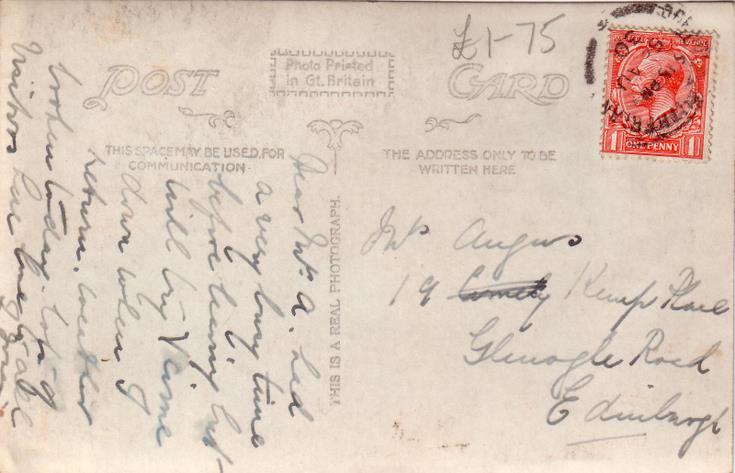 £1-75
POST CARD
Photo Printed
in Gt. Britain
THIS SPACE MAY BE USED FOR
COMMUNICATION
THE ADDRESS ONLY TO BE
WRITTEN HERE
THIS IS A REAL PHOTOGRAPH.
POSTAGE REVENUE
1 ONE PENNY 1
Dear Mrs A. Had
a very busy time
before leaving but
will try & come
down when I
return. Weather
broken today. Lots of
Visitors
Mrs Angus
19 Kemp Place
Glenogle Road
Edinburgh